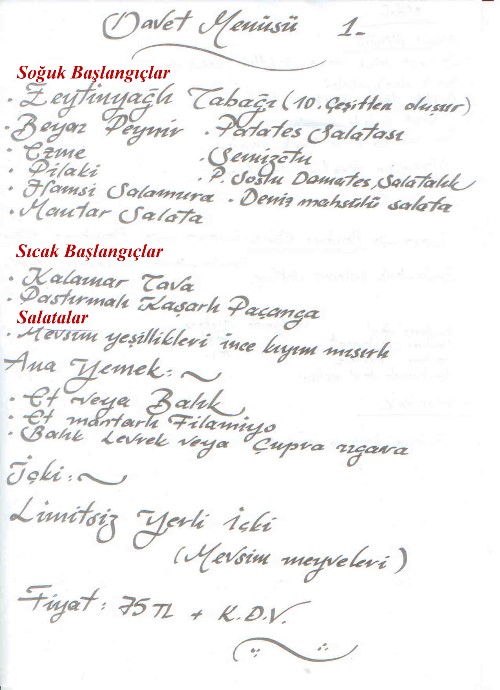 Davet Menüsü 1-
Soğuk Başlangıçlar
· Zeytinyağlı Tabağı (10. Çeşitten oluşur)
· Beyaz Peynir · Patates Salatası
· Ezme · Semizotu
· Pilaki · P. Soslu Domates, Salatalık
· Hamsi Salamura · Deniz mahsülü salata
· Mantar Salata
Sıcak Başlangıçlar
· Kalamar Tava
· Pastırmalı Kaşarlı Paçanga
Salatalar
· Mevsim yeşillikleri ince kıyım mısırlı
Ana Yemek: ~
· Et veya Balık
· Et mantarlı Filaminyo
· Balık Levrek veya Çupra ızgara
İçki: ~
Limitsiz Yerli İçki
(Mevsim meyveleri)
Fiyat: 75 TL + K.D.V.